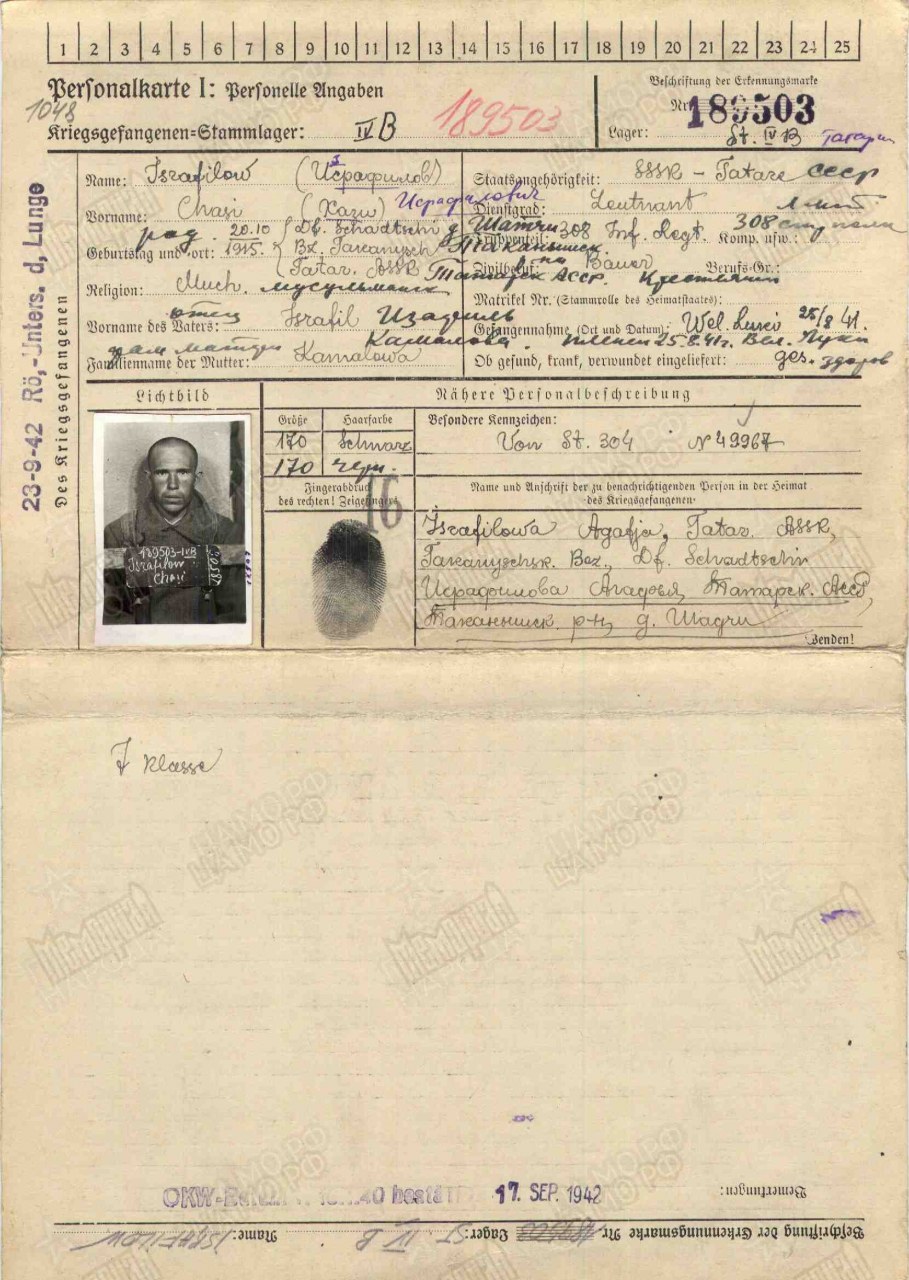 1 2 3 4 5 6 7 8 9 10 11 12 13 14 15 16 17 18 19 20 21 22 23 24 25
Personalkarte I: Personelle Angaben
1048
Kriegsgefangenen=Stammlager: IV B
189503
Beschriftung der Erkennungsmarke
Nr. 189503
Lager: St. IV B
Татарин
23-9-42 Rö,-Unters. d, Lunge
Des Kriegsgefangenen
Name: Israfilow (Исрафилов)
Vorname: Chasi (Хази) Исрафилович
род. 20.10 Df. Schadtschi д. Шатчи
Geburtstag und -ort: 1915. Bz. Takanysch Такканышск
Tatar. ASSR Татарск АССР.
Religion: Much. мусульманск
отец
Vorname des Vaters: Israfil
Камалова
Familienname der Mutter: Kamalowa
Staatsangehörigkeit: SSSR - Tatare СССР
Dienstgrad: Leutnant
Truppenteil: 308 Inf. Regt. Komp. usw.: 308
Zivilberuf: Bauer Berufs-Gr.:
Крестьянин
Matrikel Nr. (Stammrolle des Heimatstaates):
Gefangennahme (Ort und Datum): Wel. Luki 25/8 41.
пленен 25.8.41г. Вел. Луки
Ob gesund, krank, verwundet eingeliefert: ges. здоров
Lichtbild
189503-IVB
Israfilow
Chasi
Nähere Personalbeschreibung
Größe Haarfarbe
170 Schwarz
170 черн.
Besondere Kennzeichen:
Von St. 304 N 49967
Fingerabdruck
des rechten! Zeigefingers
16
Name und Anschrift der zu benachrichtigenden Person in der Heimat
des Kriegsgefangenen
Israfilowa Agafja, Tatar. ASSR,
Takanyschsk. Bez., Df. Schadtschi
Исрафилова Агафья Татарск. АССР,
Таканышск. р-н, д. Шадчи
Wenden!
I Klasse
17. SEP. 1942
Bemerkungen:
Beschriftung der Erkennungsmarke Nr. Lager: ST IV B Name: ISRAFILOW
ЦАМО РФ